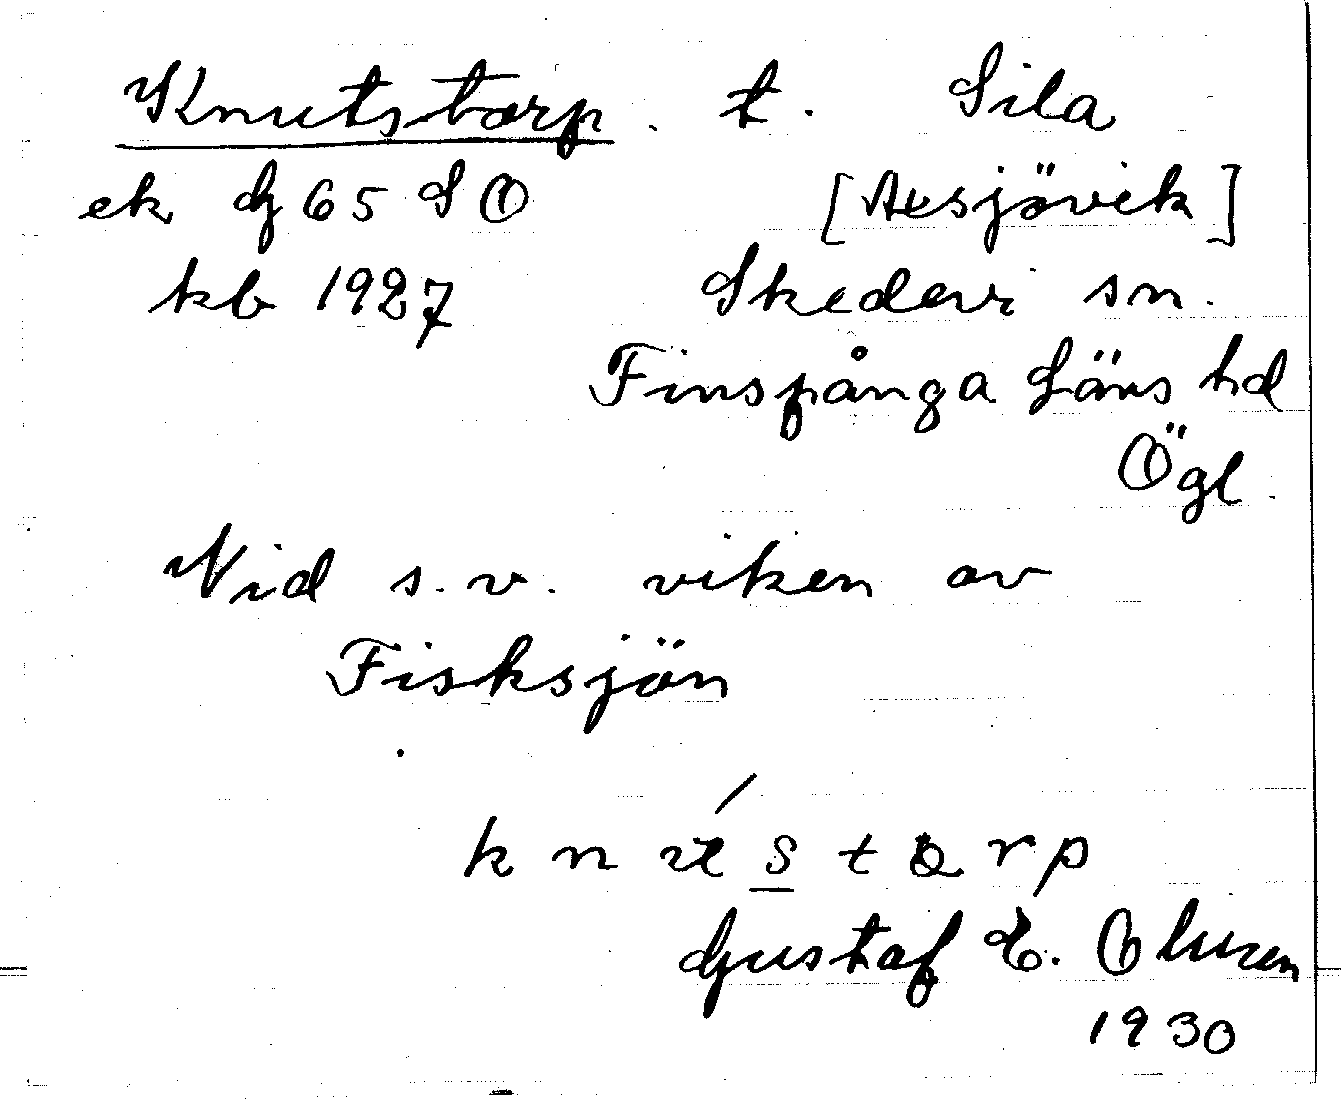 Knutstorp. t. Sila
ek G65 SO [Axsjövik]
kb 1927 Skedevi sn.
Finspånga Läns hd
Ögl.
Vid s.v. viken av
Fisksjön
Gustaf E. Oluzen
1930